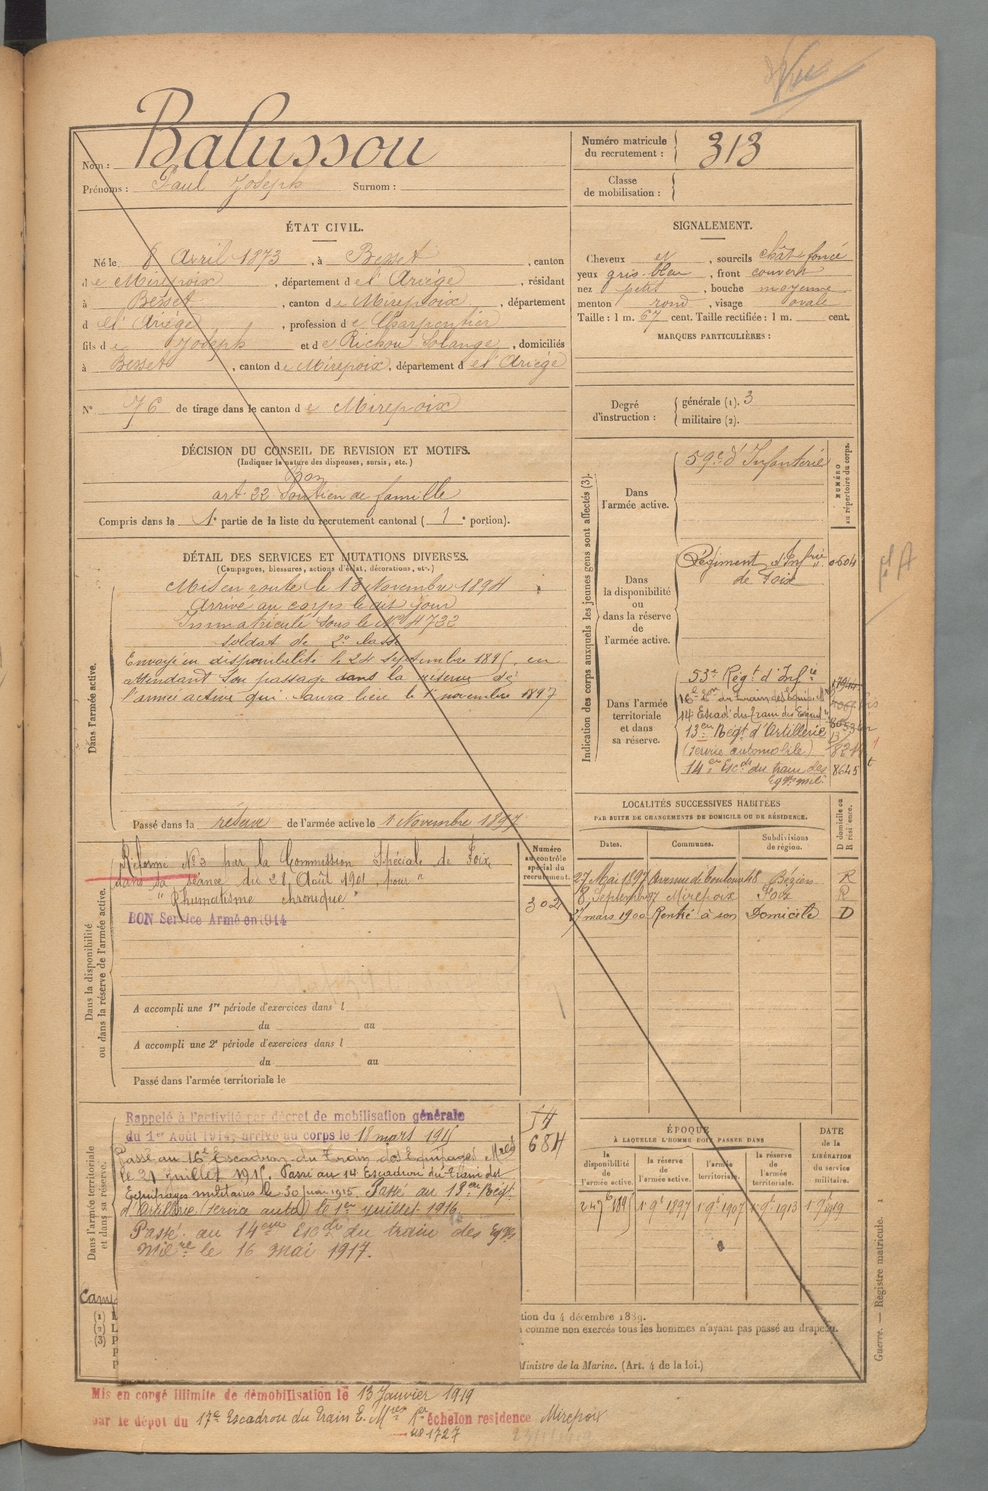 Vu
Balussou
Nom :
Prénoms : Paul Joseph Surnom :
Numéro matricule du recrutement : 313
Classe de mobilisation :
ÉTAT CIVIL.
Né le 8 Avril 1873, à Besset, canton
de Mirepoix, département de l'Ariège, résidant
à Besset, canton de Mirepoix, département
d el'Ariège, profession de Charpentier
fils de Joseph et de Richou Solange, domiciliés
à Besset, canton de Mirepoix, département de l'Ariège
N° 76 de tirage dans le canton de Mirepoix
SIGNALEMENT.
Cheveux et, sourcils chât. foncé
yeux gris-bleu, front couvert
nez petit, bouche moyenne
menton rond, visage ovale
Taille : 1 m. 67 cent. Taille rectifiée : 1 m. cent.
MARQUES PARTICULIÈRES :
Degré d'instruction : générale (1). 3
militaire (2).
DÉCISION DU CONSEIL DE REVISION ET MOTIFS.
(Indiquer la nature des dispenses, sursis, etc.)
Bon
art. 22 Soutien de famille
Compris dans la 1e partie de la liste du recrutement cantonal (1e portion).
DÉTAIL DES SERVICES ET MUTATIONS DIVERSES.
(Campagnes, blessures, actions d'éclat, décorations, etc.)
Dans l'armée active.
Mis en route le 13 Novembre 1894
Arrivé au corps le dit jour
Immatriculé sous le N° 4732
soldat de 2e classe
Envoyé en disponibilité le 24 septembre 1895, en
attendant son passage dans la réserve de
l'armée active qui aura lieu le 1er novembre 1897
Passé dans la réserve de l'armée active le 1 Novembre 1897
Indication des corps auxquels les jeunes gens sont affectés (3).
NUMÉRO au répertoire du corps.
Dans l'armée active.
59e d'Infanterie
Dans la disponibilité ou dans la réserve de l'armée active.
Régiment d'Infrie de Foix
0604
Dans l'armée territoriale et dans sa réserve.
53e Régt d'Infie
16e Eon du train des Equip. Mres
14 Escad. du train des Equip.
13em Régt d'Artillerie
(service automobile)
14em Escon du train des
Eqges milr
8645
LOCALITÉS SUCCESSIVES HABITÉES
PAR SUITE DE CHANGEMENTS DE DOMICILE OU DE RÉSIDENCE.
D domicile ou R résidence.
Dates. Communes. Subdivisions de région.
27 Mai 1897 48 Béziers R
8 Septembre Mirepoix Foix R
mars 1900 Rentré à son Domicile D
Dans la disponibilité ou dans la réserve de l'armée active.
Numéro au contrôle spécial du recrutement.
302
Réformé N° 2 par la Commission Spéciale de Foix,
dans sa séance du 21 Août 1901, pour
"Rhumatisme chronique"
BON Service Armé en 1914
A accompli une 1re période d'exercices dans l
du au
A accompli une 2e période d'exercices dans l
du au
Passé dans l'armée territoriale le
Dans l'armée territoriale et dans sa réserve.
Rappelé à l'activité par décret de mobilisation générale
du 1er Août 1914, arrivé au corps le 18 mars 1915
Passé au 16e Escadron du Train des Equipages Mres
le 21 Juillet 1915. Passé au 14 Escadron du Train des
Equipages militaires le 30 1915. Passé au 13em Régt
d'Artillerie (service auto) le 1er juillet 1916.
Passé au 14em Escon du train des Eqges
Milre le 16 mai 1917.
684
ÉPOQUE
À LAQUELLE L'HOMME DOIT PASSER DANS
la disponibilité de l'armée active.
la réserve de l'armée active.
l'armée territoriale.
la réserve de l'armée territoriale.
DATE de la LIBÉRATION du service militaire.
24 7b 1895 1 9b 1897 1 9b 1907 1 9b 1913 1 9b 1919
Camp
(1) L
(2) L
(3) P
tion du 4 décembre 1889.
comme non exercés tous les hommes n'ayant pas passé au drapeau.
Ministre de la Marine. (Art. 4 de la loi.)
Guerre. — Registre matricule. 1
Mis en congé illimité de démobilisation le 13 Janvier 1919
par le dépôt du 17e Escadron du Train E. Mres échelon residence Mirepoix
n° 1727